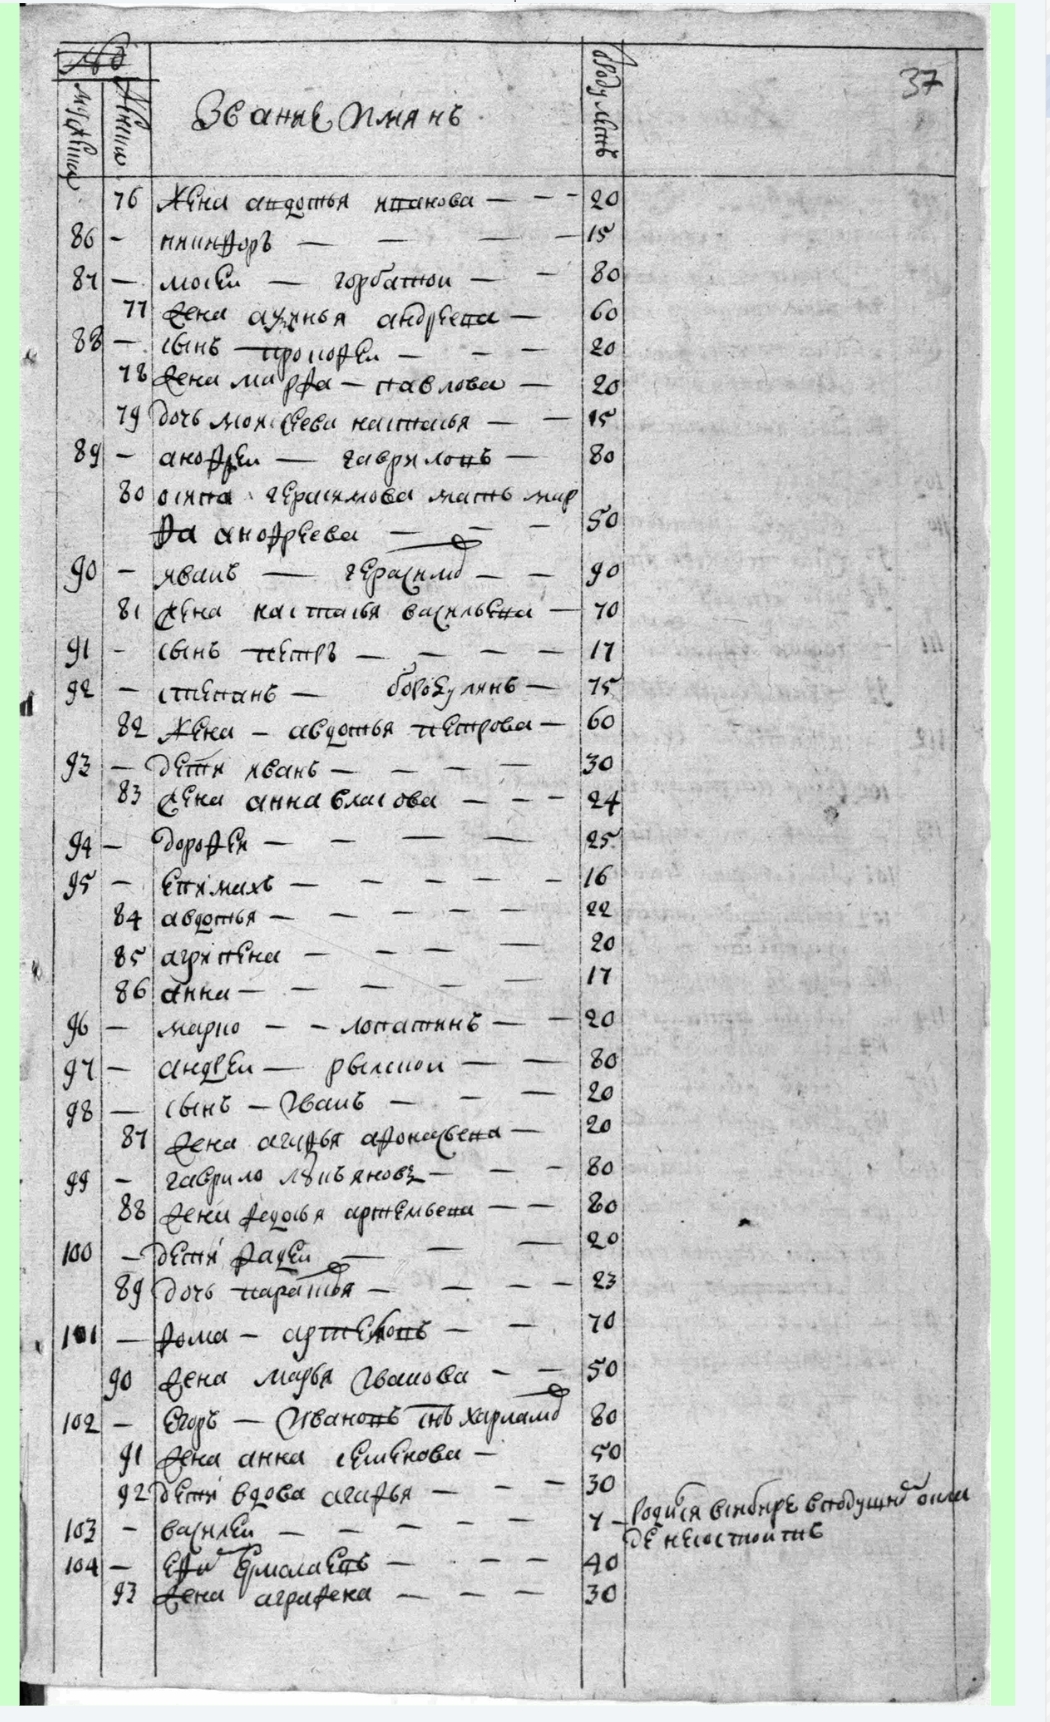 37
№
мужеска
женска
Звание имянъ
сводумъ летъ
76 жена авдотья иванова — — - 20
86 - никифоръ — — — — 15
87 — мосеи — горбатои — — 80
77 жена аѳинья андреева — 60
88 — сынъ прокофеи — — — 20
78 жена марфа — павлова — 20
79 дочь моисеева наталья — — 15
89 — андреи — гавриловъ — 80
80 герасимова мать мар
фа андреева — — — 50
90 — иванъ — герасимо — — 90
81 жена наталья васильева — 70
91 - сынъ петръ — — — — 17
92 — степанъ — бородулинъ — 75
82 жена — авдотья петрова — 60
93 — дети иванъ — — — — 30
83 жена анна власова — — - 24
94 — дорофеи — — — — 25
95 — епимахъ — — — — - 16
84 авдотья — — — — — 22
85 агрипена — — — — 20
86 анна — — — — — 17
96 — марко — - лопатинъ — — 20
97 — андреи — рылскои — — 80
98 — сынъ — иванъ — — — 20
87 жена агафья афонасьева — 20
99 - гаврило лукьяновъ — — - 80
88 жена федосья артемьева — — 80
100 — дети фадеи — — — 20
89 дочь парасковья — — — — 23
101 — фома — артемовъ — — 70
90 жена марья иванова — — 50
102 — егоръ — ивановъ снъ харламо 80
91 жена анна семенова — 50
92 дети вдова агафья — — - 30
103 - василеи — — — — — 7 — родился в сибире в подушной окла
де не состоитъ
104 — ермолаевъ — — — — 40
93 жена аграфена — — — 30